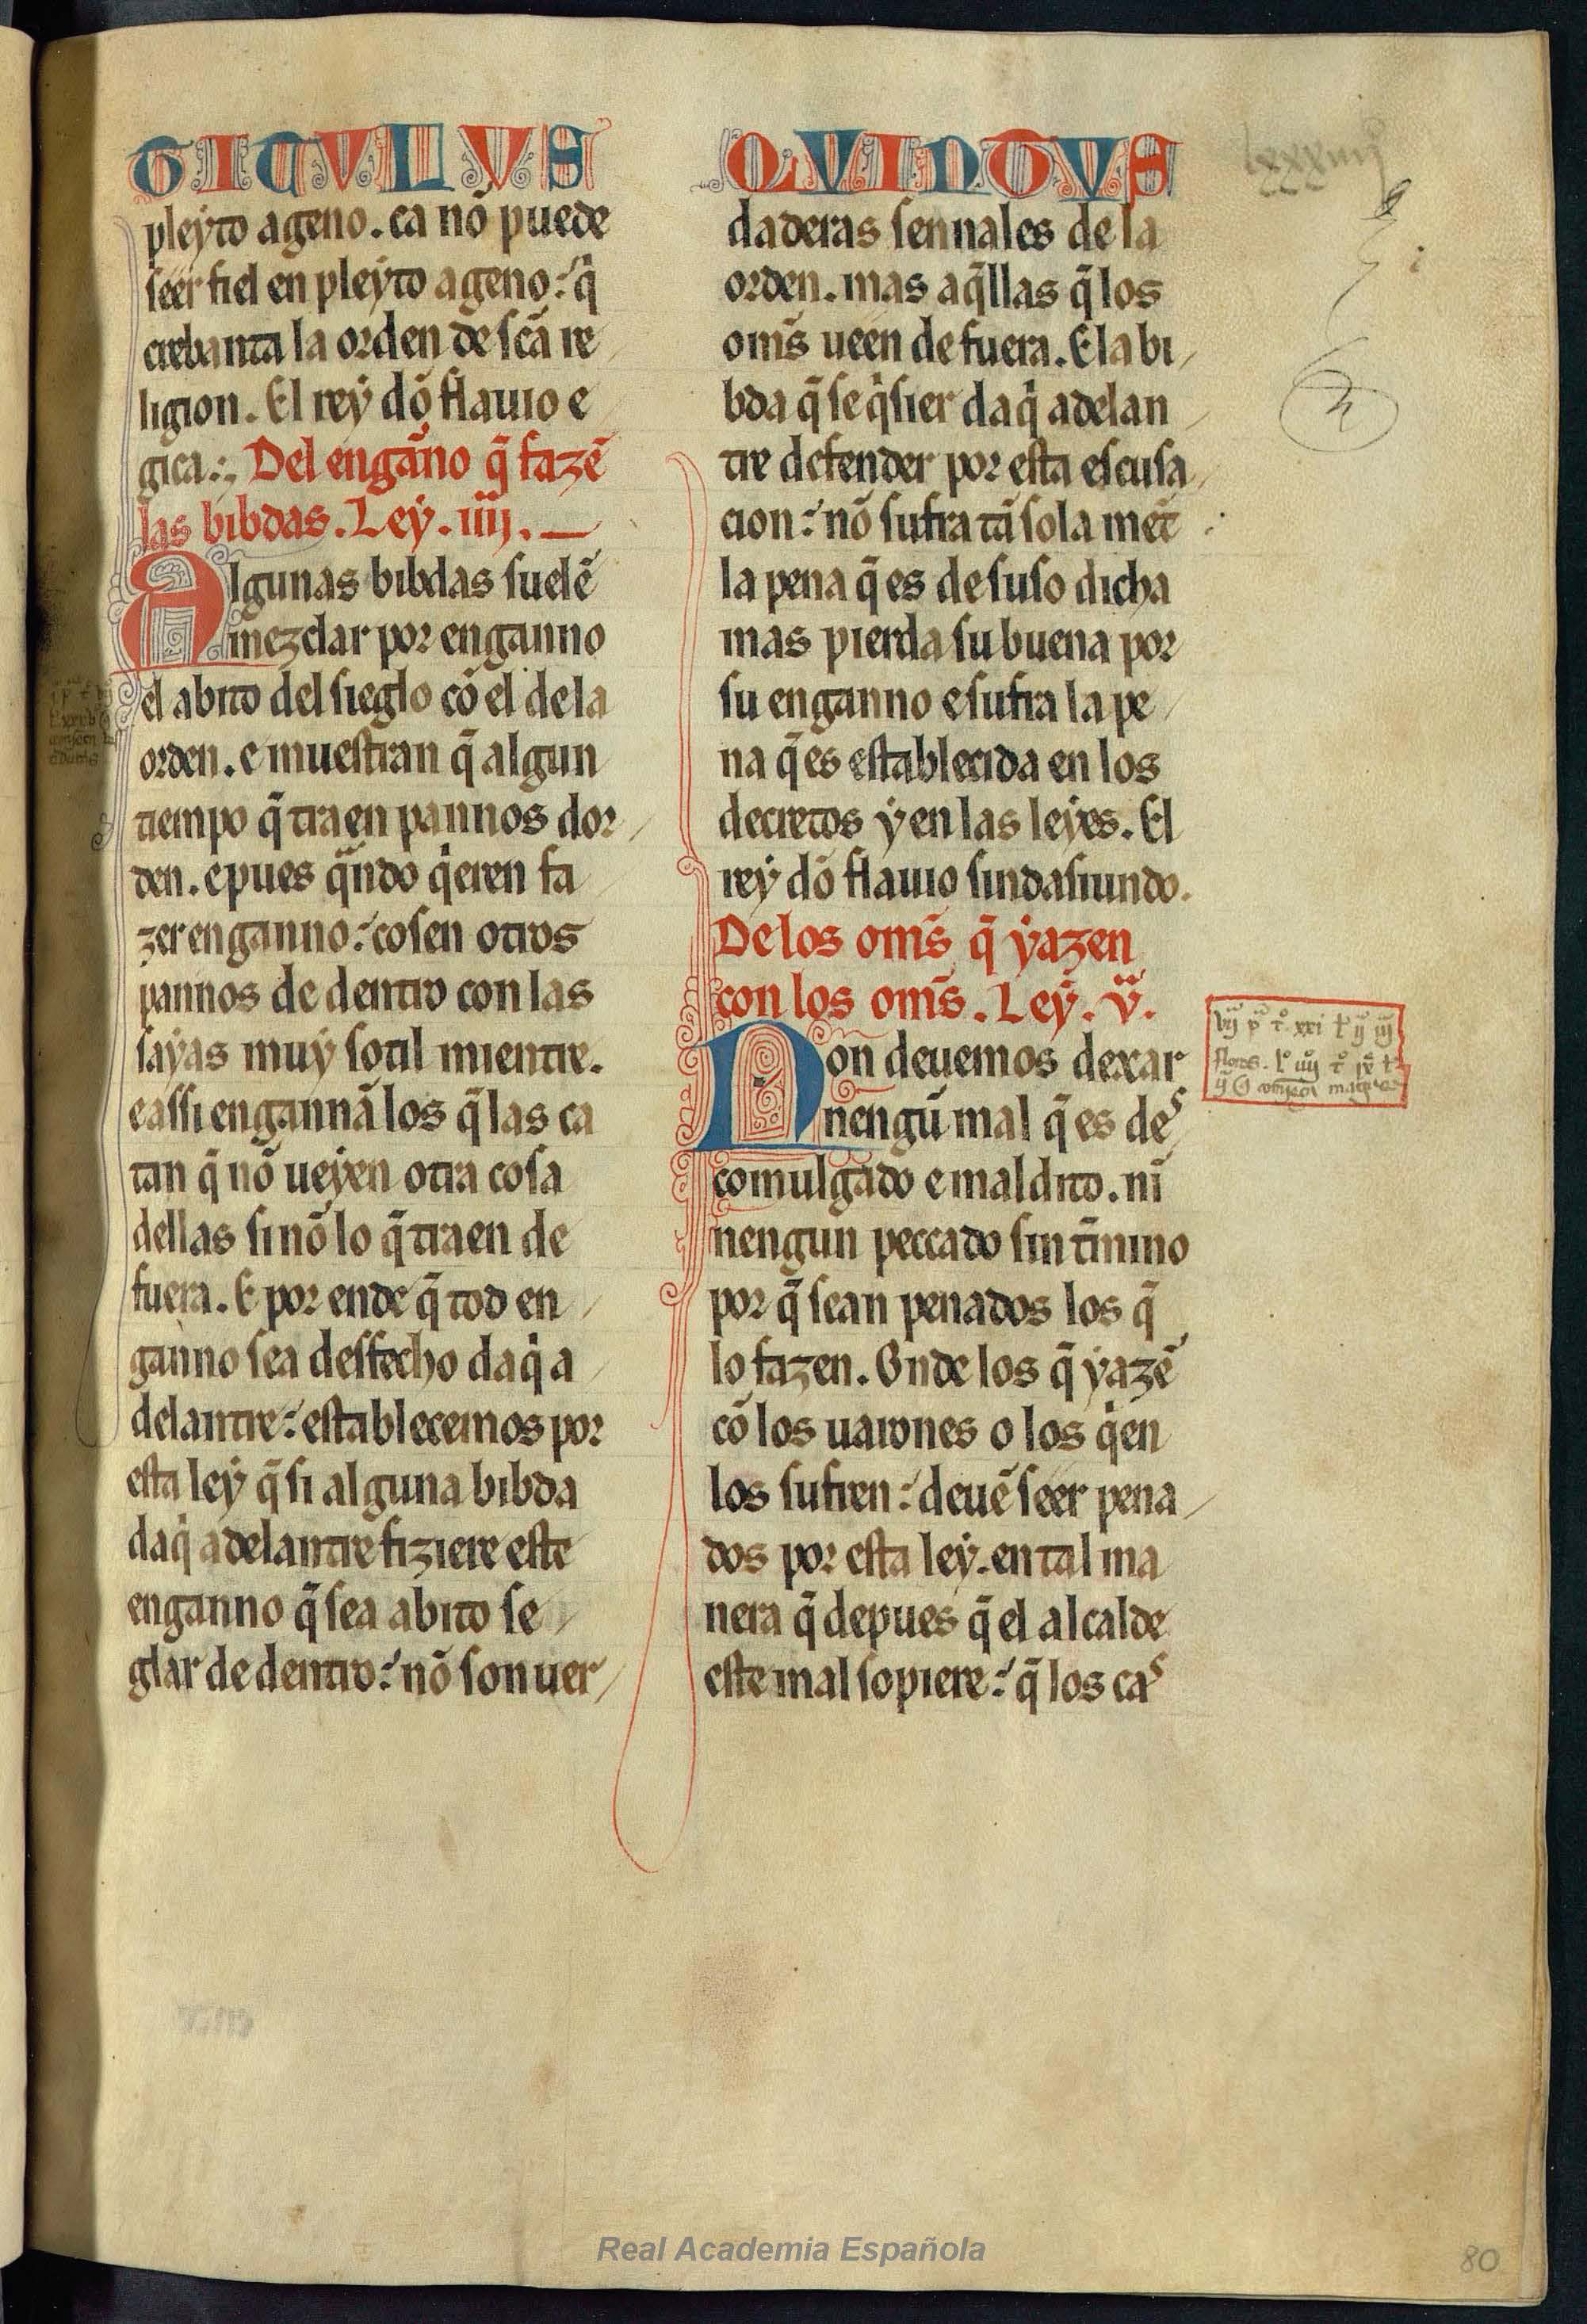 TITULUS QUINTUS
pleyto ageno. ca nõ puede
seer fiel en pleyto ageno: q̃
crebanta la orden de scã re
ligion. El rey dõ flauio e
gica. Del engãno q̃ fazẽ
las bibdas. Ley. iiij.
Algunas bibdas suelẽ
mezclar por enganno
el abito del sieglo cõ el de la
orden. e muestran q̃ algun
tiempo q̃ traen pannos dor
den. e pues q̃ndo q̃eren fa
zer enganno: cosen otros
pannos de dentro con las
sayas muy sotil mientre.
e assi engannã los q̃ las ca
tan q̃ nõ ueyen otra cosa
dellas si nõ lo q̃ traen de
fuera. E por ende q̃ tod en
ganno sea desfecho daq̃ a
delantre: establecemos por
esta ley q̃ si alguna bibda
daq̃ adelantre fiziere este
enganno q̃ sea abito se
glar de dentro: nõ son uer
daderas sennales de la
orden. mas aq̃llas q̃ los
oms̃ ueen de fuera. E la bi
bda q̃ se q̃sier daq̃ adelan
tre defender por esta escusa
cion: nõ sufra tã sola mẽt
la pena q̃ es de suso dicha
mas pierda su buena por
su enganno e sufra la pe
na q̃ es establecida en los
decretos y en las leyes. El
rey dõ flauio sindasiundo.
De los oms̃ q̃ yazen
con los oms̃. Ley. v.
Non deuemos dexar
nengũ mal q̃ es de
comulgado e maldito. nĩ
nengun peccado sin t̃mino
por q̃ sean penados los q̃
lo fazen. Onde los q̃ yazẽ
cõ los uarones o los q̃ en
los sufren: deuẽ seer pena
dos por esta ley. en tal ma
nera q̃ depues q̃ el alcalde
este mal sopiere: q̃ los ca
Real Academia Española
80